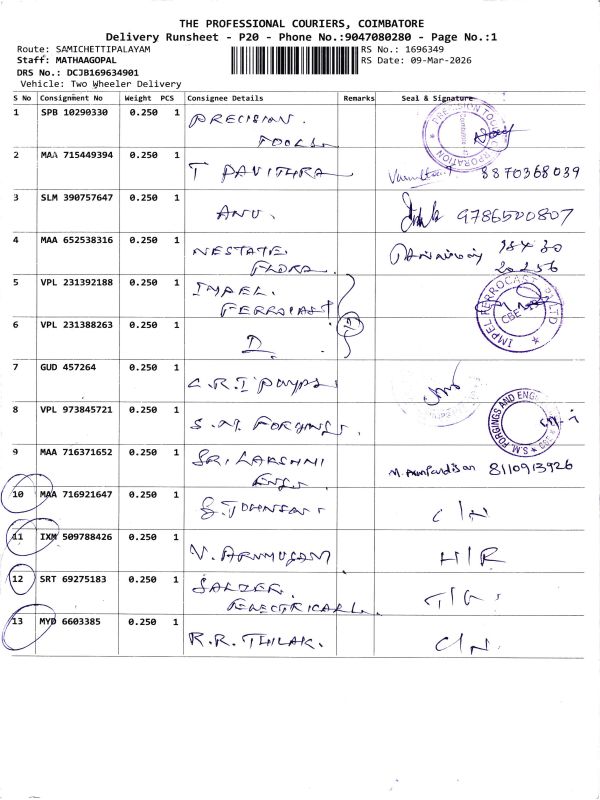 THE PROFESSIONAL COURIERS, COIMBATORE
Delivery Runsheet - P20 - Phone No.:9047080280 - Page No.:1
Route: SAMICHETTIPALAYAM
RS No.: 1696349
Staff: MATHAAGOPAL
RS Date: 09-Mar-2026
DRS No.: DCJB169634901
Vehicle: Two Wheeler Delivery
S No Consignment No Weight PCS Consignee Details Remarks Seal & Signature
1 SPB 10290330 0.250 1 PRECISION
TOOLS.
2 MAA 715449394 0.250 1 T PAVITHRA 8870368039
3 SLM 390757647 0.250 1 ANU. 9786500807
4 MAA 652538316 0.250 1 NESTATE
FLORA
5 VPL 231392188 0.250 1 IMPEL
FERROCAST
IMPEL FERROCAST P LTD
CBE
6 VPL 231388263 0.250 1 D
7 GUD 457264 0.250 1 C.R.I Pumps
8 VPL 973845721 0.250 1 S.M. FORGINGS.
S.M. FORGINGS AND
9 MAA 716371652 0.250 1 SRI LAKSHMI 8110913926
ENGG
10 MAA 716921647 0.250 1 S. JOHNSAN C/N
11 IXM 509788426 0.250 1 V. ARUMUGAM H/R
12 SRT 69275183 0.250 1 SALZER
ELECTRICAL.
13 MYD 6603385 0.250 1 R.R. THILAK. C/N